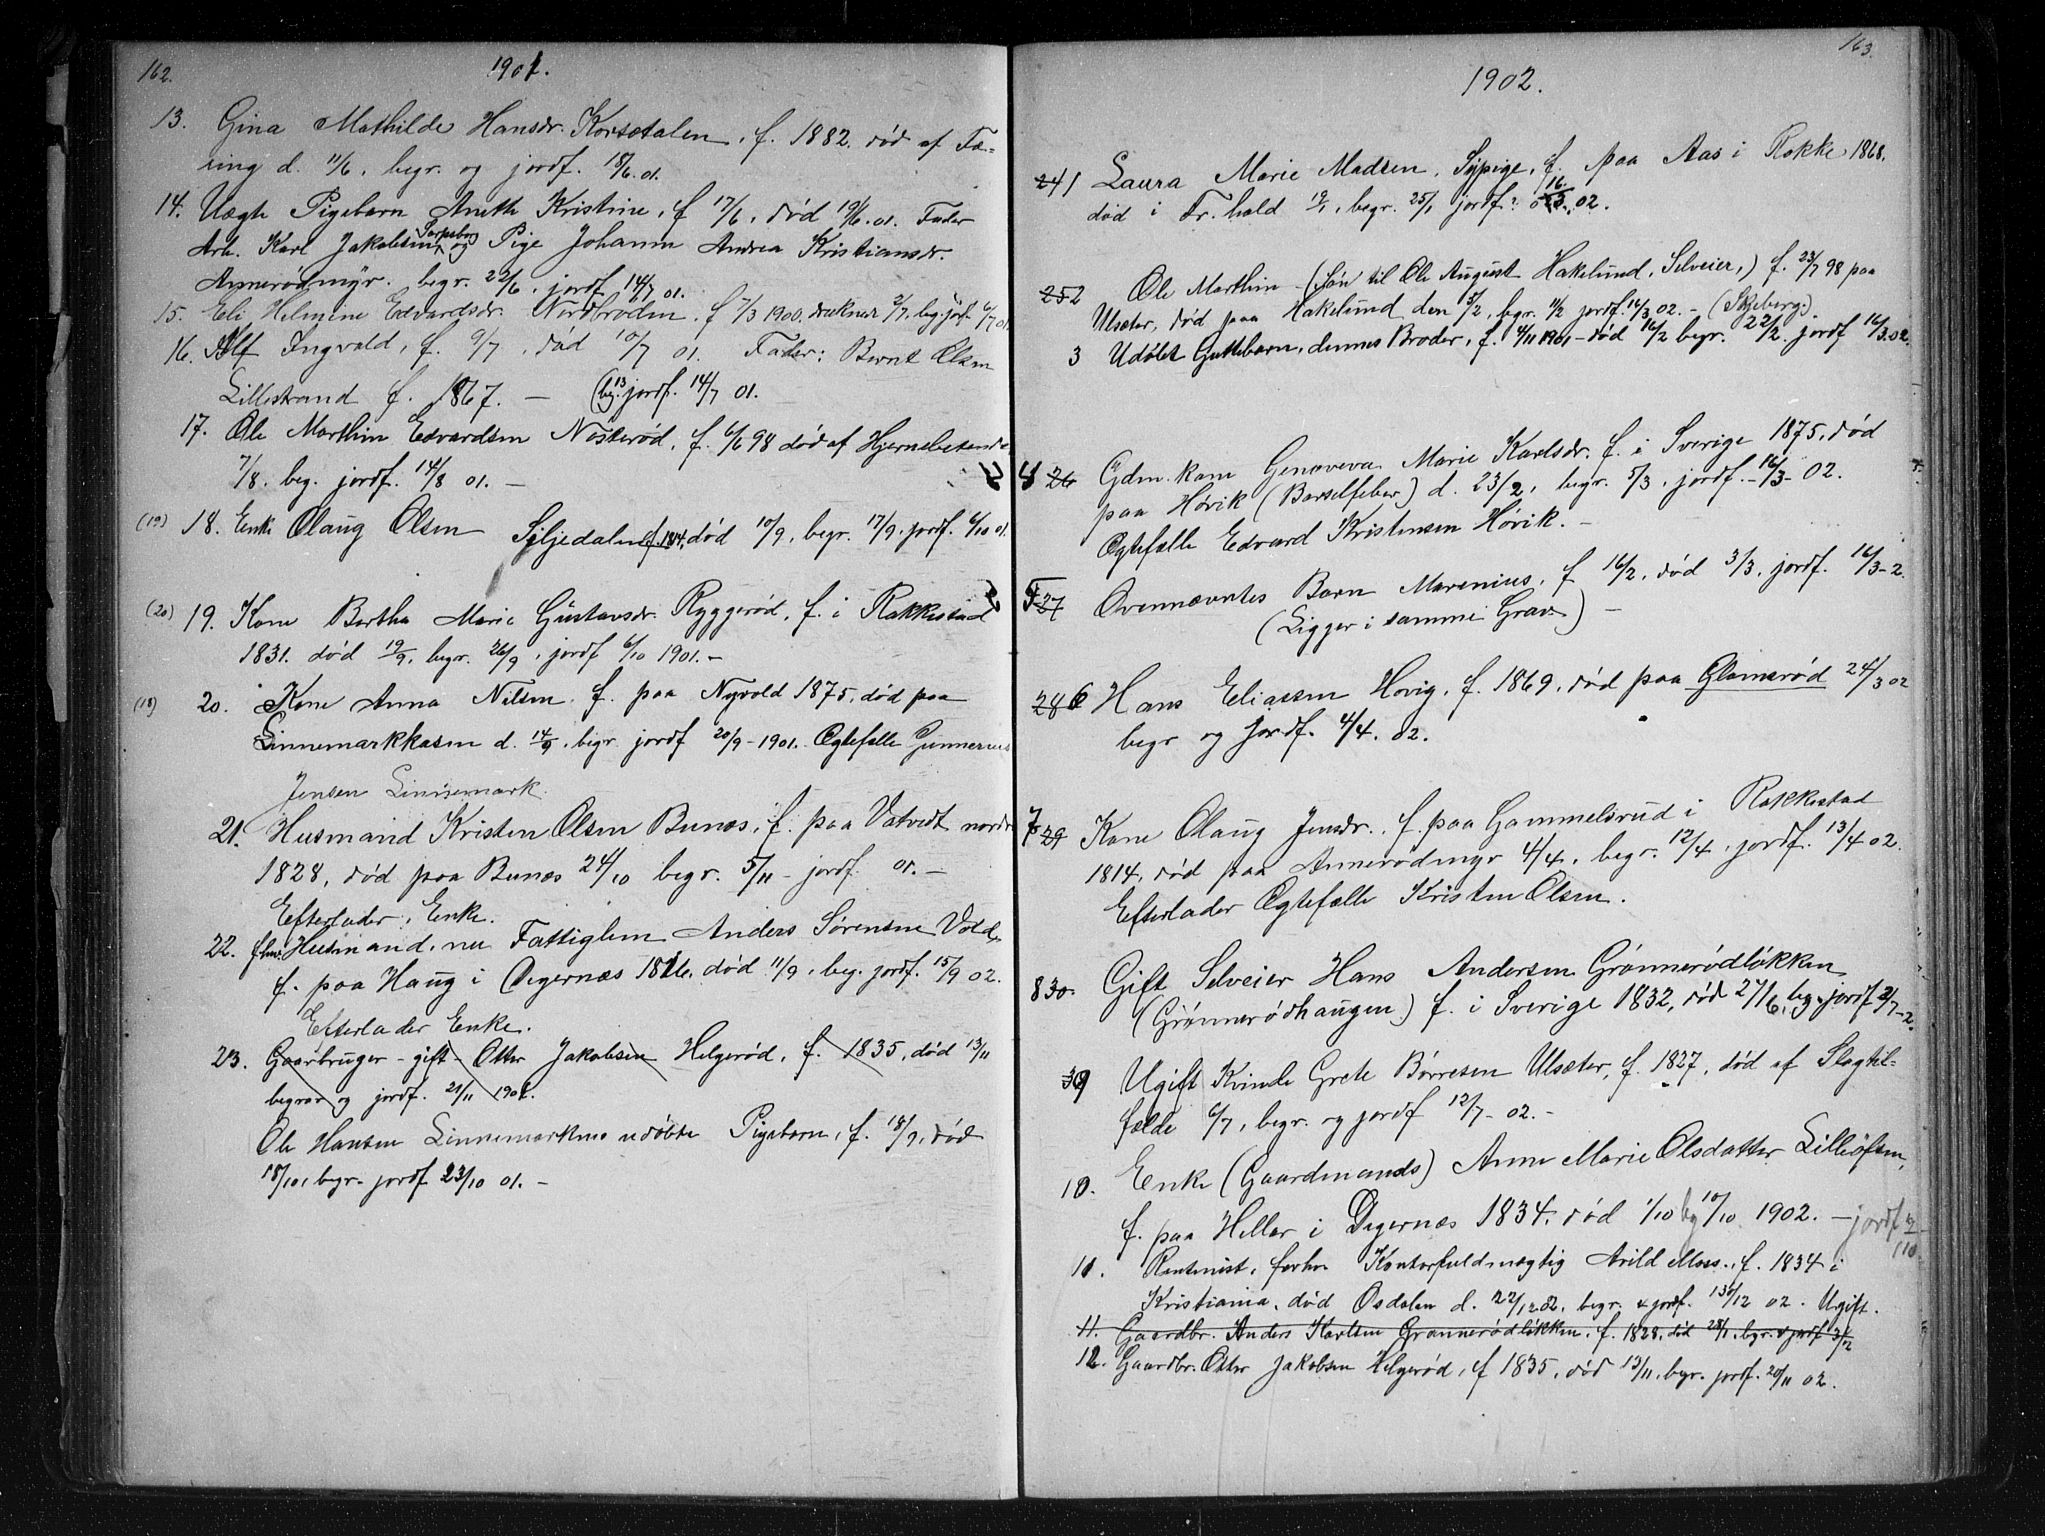 162.
1901.
13. Gina Mathilde Hansdr. Korsetalen, f. 1882. død af Tæ-
ring d. 11/6, begr. og jordf. 18/6. 01.
14. Uægte Pigebarn Aneth Kristine, f 17/6, død 19/6. 01. Fader
Arb. Karl Jakobsen Sarpsborg og Pige Johanne Andrea Kristiansdr.
Annerødmyr. begr. 22/6, jordf 14/7 01.
15. Eli Helmine Edvardsdr. Nordbroden, f 7/3 1900, druknet 2/7, beg. jof. 6/7 01
16. Alf Ingvald, f. 9/7, død 10/7 01. Fader: Bernt Olsen
Lillestrand f. 1867. — (beg. 13 jordf. 14/7 01.
17. Ole Marthin Edvardsen Nøsterød, f. 6/6 98 død af Hjernebetende
7/8. beg. jordf. 14/8 01. —
(19) 18. Enke Olaug Olsen Siljedalen f. 1814, død 10/9, begr. 17/9. jordf. 6/10 01.
(20) 19. Kone Bertha Marie Gustavsdr. Ryggerød, f. i Rakkestad
1831. død 19/9, begr. 26/9, jordf 6/10 1901. —
(18) 20. Kone Anna Nilsen. f. paa Nyvold 1875, død paa
Linnemarkkasen d. 14/9, begr. jordf 20/9 - 1901. Ægtefælle Gunnerius
Jensen Linnemark.
21. Husmand Kristen Olsen Bunæs, f. paa Vatvedt nordr
1828, død paa Bunæs 24/10 begr. 5/11 - jordf. 01. —
Efterlader Enke.
22. fhv. Husmand, nu Fattiglem Anders Sørensen Vold,
f. paa Haug i Degernæs 1826. død 11/9, beg. jordf. 15/9 02.
Efterlader Enke.
23. Gaarbruger - gift - Otter Jakobsen Helgerød, f. 1835, død 13/11
begrav og jordf. 21/11 1901.
Ole Hansen Linnemarkens udøbte Pigebarn, f. 18/9, død
18/10, begr. jordf 23/10 01. —
163.
1902.
241 Laura Marie Madsen, Sypige, f. paa Aas i Rokke 1868.
død i Fr.hald 19/1, begr. 25/1 jordf. 16/3 02.
252 Ole Marthin (Søn til Ole August Hakelund, Selveier,) f. 23/7 98 paa
Ulsæter, død paa Hakelund den 5/2, begr. 11/2 jordf. 16/3 02. — (Skjeberg.)
3 Udøbt Guttebarn, dennes Broder, f. 4/11 1901 — død 16/2 begr. 22/2. jordf 16/3. 02.
4 26 Gdm.kone Genoveva Marie Karlsdr. f. i Sverige 1875, død
paa Høvik (Barselfeber) d. 23/2, begr. 5/3, jordf. 16/3 - 02.
Ægtefælle Edvard Kristensen Høvik. —
5 27 Ovennævntes Barn Marenius, f 16/2, død 3/3, jordf. 16/3 - 2.
(Ligger i samme Grav.) —
28 6 Hans Eliassen Hovig, f. 1869, død paa Glomsrød 24/3 02
begr og jordf. 4/4. 02.
7 29 Kone Olaug Jensdr., f. paa Gammelsrud i Rakkestad
1814, død paa Annerødmyr 4/4, begr. 12/4, jordf. 13/4 02.
Efterlader Ægtefælle Kristen Olsen.
8 30. Gift Selveier Hans Andersen Grønnerødløkken
(Grønnerødhaugen) f. i Sverige 1832, død 27/6, beg. jordf 2/7 - 2.
9 Ugift Kvinde Grete Børresen Ulsæter, f. 1827, død af Slagtil-
fælde 6/7, begr. og jordf 12/7 - 02. —
10. Enke (Gaardmands) Anne Marie Olsdatter Lilleøften,
f. paa Heller i Degernæs 1834. død 1/10 beg 10/10 1902. — jordf
11. Rentenist, forhv Kontorfuldmægtig Arild Moss, f. 1834 i
Kristiania, død Osdalen d. 22/12 02, begr. & jordf. 30/12 02. Ugift.
11. Gaardbr. Anders Karlsen Grønnerødløkken, f. 1828, død 28/1, begr. & jordf 3/2
12. Gaardbr. Otter Jakobsen Helgerød, f 1835, død 13/11, begr. jordf. 20/11 02.